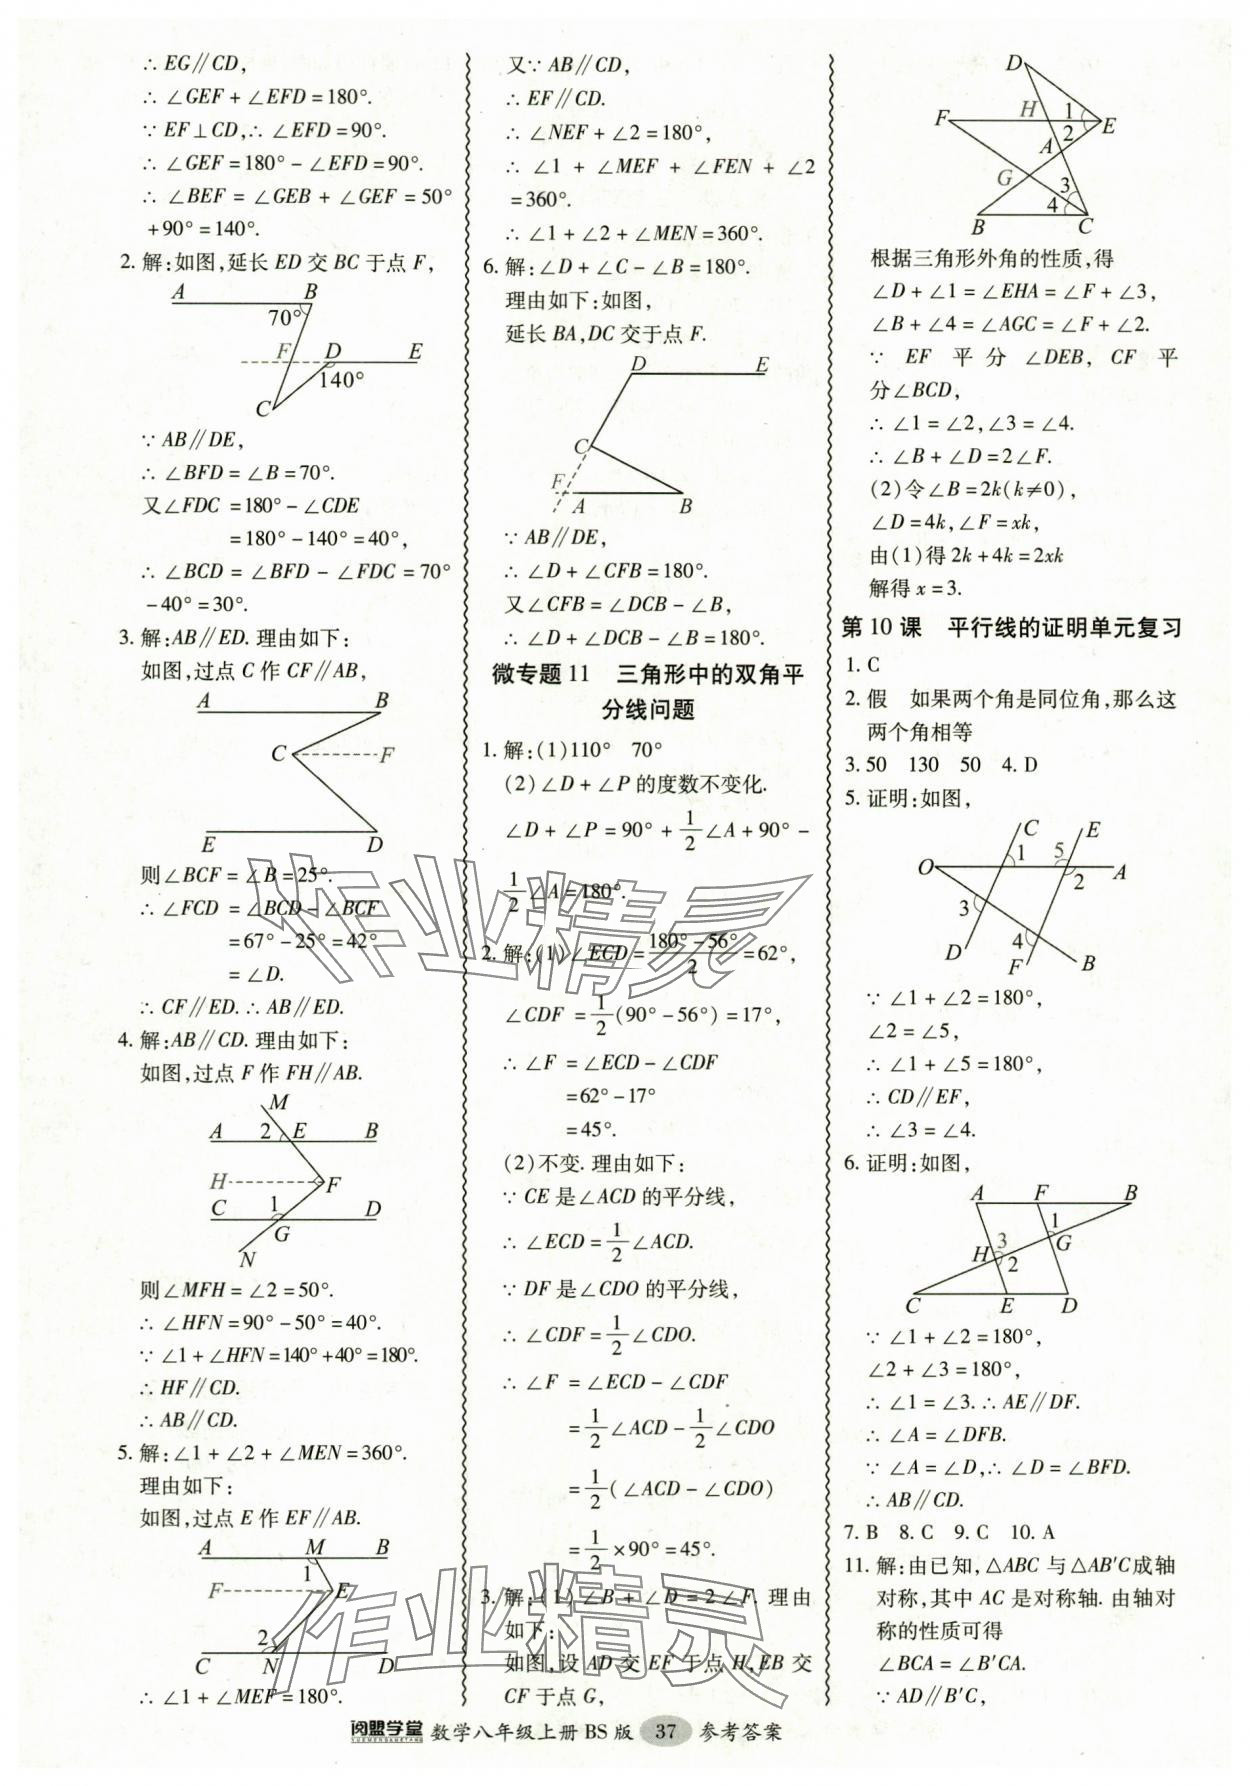 ∴ EG∥CD,
∴ ∠GEF + ∠EFD = 180°.
∵ EF⊥CD, ∴ ∠EFD = 90°.
∴ ∠GEF = 180° - ∠EFD = 90°.
∴ ∠BEF = ∠GEB + ∠GEF = 50°
+ 90° = 140°.
2. 解:如图,延长 ED 交 BC 于点 F,
A B
70°
F D E
140°
C
∵ AB∥DE,
∴ ∠BFD = ∠B = 70°.
又∠FDC = 180° - ∠CDE
= 180° - 140° = 40°,
∴ ∠BCD = ∠BFD - ∠FDC = 70°
- 40° = 30°.
3. 解:AB∥ED. 理由如下:
如图,过点 C 作 CF∥AB,
A B
C F
E D
则∠BCF = ∠B = 25°.
∴ ∠FCD = ∠BCD - ∠BCF
= 67° - 25° = 42°
= ∠D.
∴ CF∥ED. ∴ AB∥ED.
4. 解:AB∥CD. 理由如下:
如图,过点 F 作 FH∥AB.
M
A 2 E B
H F
C 1 D
G
N
则∠MFH = ∠2 = 50°.
∴ ∠HFN = 90° - 50° = 40°.
∵ ∠1 + ∠HFN = 140° + 40° = 180°.
∴ HF∥CD.
∴ AB∥CD.
5. 解:∠1 + ∠2 + ∠MEN = 360°.
理由如下:
如图,过点 E 作 EF∥AB.
A M B
1
F E
2
C N D
∴ ∠1 + ∠MEF = 180°.
又∵ AB∥CD,
∴ EF∥CD.
∴ ∠NEF + ∠2 = 180°,
∴ ∠1 + ∠MEF + ∠FEN + ∠2
= 360°.
∴ ∠1 + ∠2 + ∠MEN = 360°.
6. 解:∠D + ∠C - ∠B = 180°.
理由如下:如图,
延长 BA,DC 交于点 F.
D E
C
F
A B
∵ AB∥DE,
∴ ∠D + ∠CFB = 180°.
又∠CFB = ∠DCB - ∠B,
∴ ∠D + ∠DCB - ∠B = 180°.
微专题 11 三角形中的双角平
分线问题
1. 解:(1)110° 70°
(2)∠D + ∠P 的度数不变化.
∠D + ∠P = 90° + 1/2∠A + 90° -
1/2∠A = 180°.
2. 解:(1)∠ECD = (180° - 56°)/2 = 62°,
∠CDF = 1/2(90° - 56°) = 17°,
∴ ∠F = ∠ECD - ∠CDF
= 62° - 17°
= 45°.
(2)不变. 理由如下:
∵ CE 是∠ACD 的平分线,
∴ ∠ECD = 1/2∠ACD.
∵ DF 是∠CDO 的平分线,
∴ ∠CDF = 1/2∠CDO.
∴ ∠F = ∠ECD - ∠CDF
= 1/2∠ACD - 1/2∠CDO
= 1/2(∠ACD - ∠CDO)
= 1/2 × 90° = 45°.
3. 解:(1)∠B + ∠D = 2∠F. 理由
如下:
如图,设 AD 交 EF 于点 H,EB 交
CF 于点 G,
D
H 1
F 2 E
A
G 3
4
B C
根据三角形外角的性质,得
∠D + ∠1 = ∠EHA = ∠F + ∠3,
∠B + ∠4 = ∠AGC = ∠F + ∠2.
∵ EF 平分 ∠DEB, CF 平
分∠BCD,
∴ ∠1 = ∠2,∠3 = ∠4.
∴ ∠B + ∠D = 2∠F.
(2)令∠B = 2k(k≠0),
∠D = 4k,∠F = xk,
由(1)得 2k + 4k = 2xk
解得 x = 3.
第 10 课 平行线的证明单元复习
1. C
2. 假 如果两个角是同位角,那么这
两个角相等
3. 50 130 50 4. D
5. 证明:如图,
C E
1 5
O 2 A
3
4
D F B
∵ ∠1 + ∠2 = 180°,
∠2 = ∠5,
∴ ∠1 + ∠5 = 180°,
∴ CD∥EF,
∴ ∠3 = ∠4.
6. 证明:如图,
A F B
1
H 3 G
2
C E D
∵ ∠1 + ∠2 = 180°,
∠2 + ∠3 = 180°,
∴ ∠1 = ∠3. ∴ AE∥DF.
∴ ∠A = ∠DFB.
∵ ∠A = ∠D, ∴ ∠D = ∠BFD.
∴ AB∥CD.
7. B 8. C 9. C 10. A
11. 解:由已知,△ABC 与△AB′C 成轴
对称,其中 AC 是对称轴. 由轴对
称的性质可得
∠BCA = ∠B′CA.
∵ AD∥B′C,
阅盟学堂 YUEMENGXUETANG 数学八年级上册 BS 版 37 参考答案
作业精灵
作业精灵